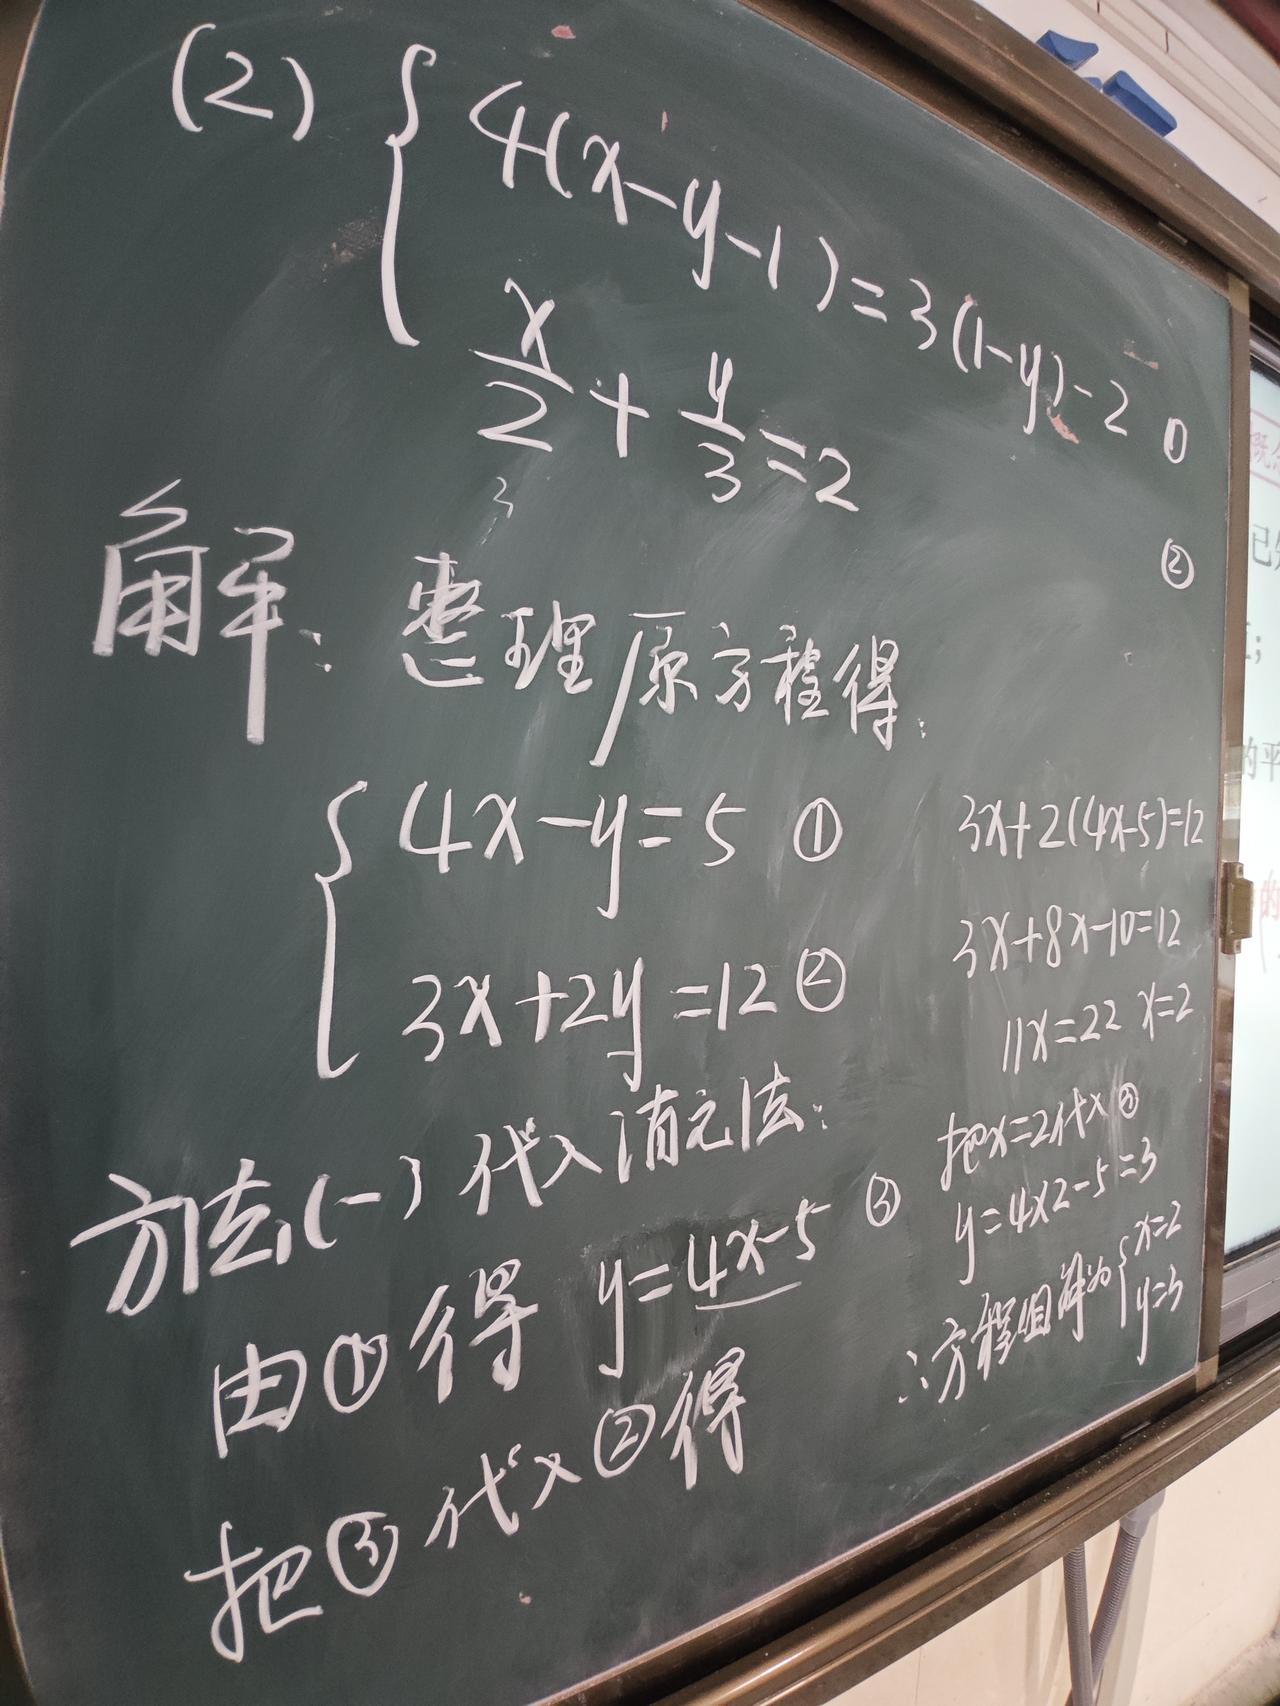 (2) { 4(x-y-1)=3(1-y)-2 ①
x/2 + y/3 = 2 ②
3
解: 整理原方程得:
{ 4x-y=5 ①
3x+2y=12 ②
方法(一) 代入消元法:
由①得 y=4x-5 ③
把③代入②得
3x+2(4x-5)=12
3x+8x-10=12
11x=22 x=2
把x=2代入③
y=4×2-5=3
∴方程组解为{ x=2
y=3
已知
的平
的